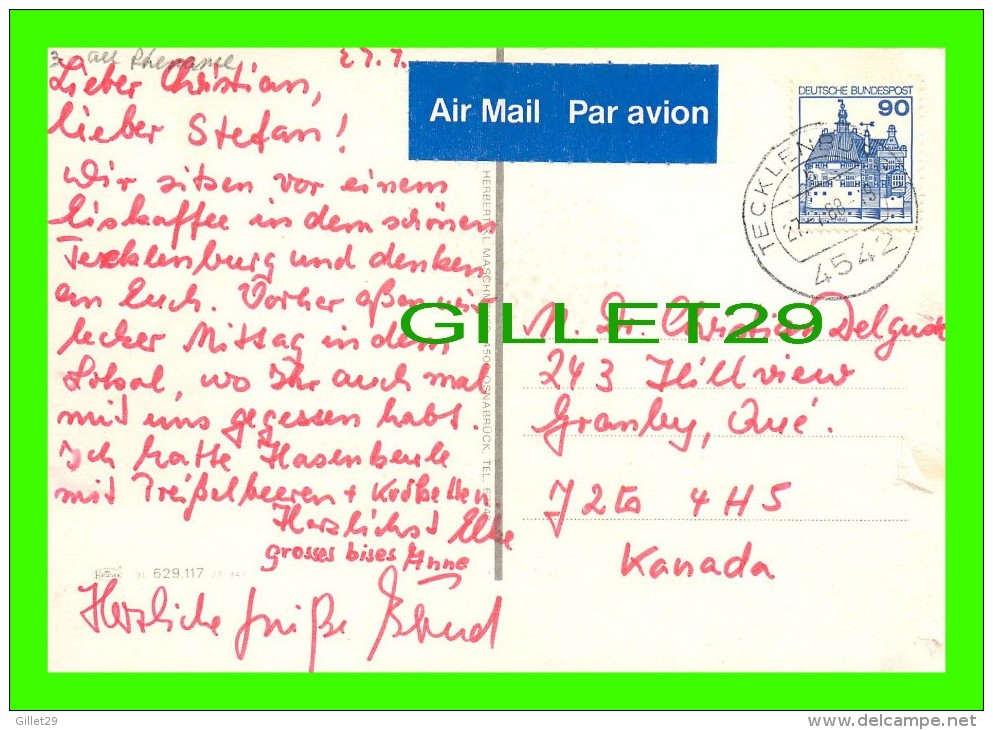 au Rhénanie
27.7.
Lieber Christian,
lieber Stefan!
Wir sitzen vor einem
Eiskaffee in dem schönen
Tecklenburg und denken
an Euch. Vorher aßen wir
lecker Mittag in dem
Lokal, wo Ihr auch mal
mit uns gegessen habt.
Ich hatte Hasenkeule
mit Preißelbeeren + Kroketten.
Herzlichst Elke
grosses bises Anne
Herzliche Grüße
629.117
Air Mail Par avion
DEUTSCHE BUNDESPOST
90
TECKLENBURG
4542
HERBERT
OSNABRÜCK, TEL.
GILLET29
M. Dr. Christian
243 Hillview
Granby, Qué.
J2G 4H5
Kanada
Gillet29
www.delcampe.net